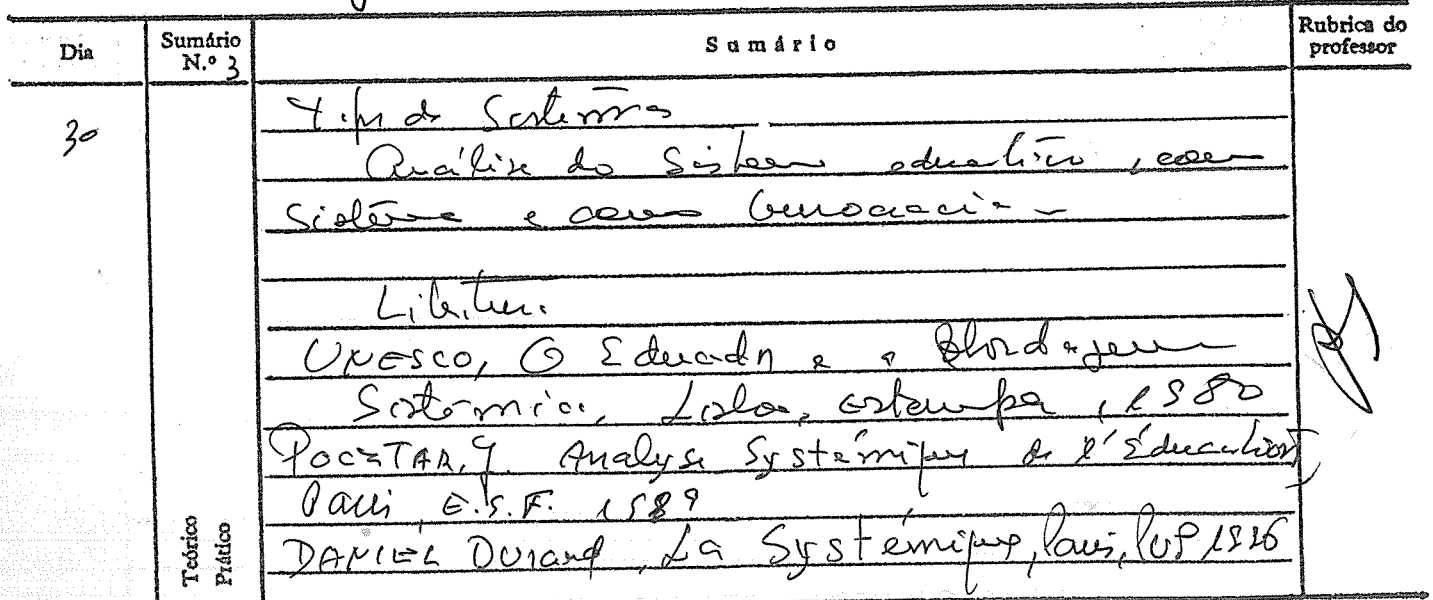 Dia
Sumário N.º 3
Sumário
Rubrica do professor
30
Tipos de Sistemas
Análise do Sistema educativo, como
Sistema e como burocracia
UNESCO, O Educador e a Abordagem
Sistémica, Lisboa, Estampa, 1980
POCZTAR, J. Analyse Systémique de l'Éducation,
Paris, E.S.F. 1989
DANIEL Durand, La Systémique, Paris, PUF
Teórico
Prático